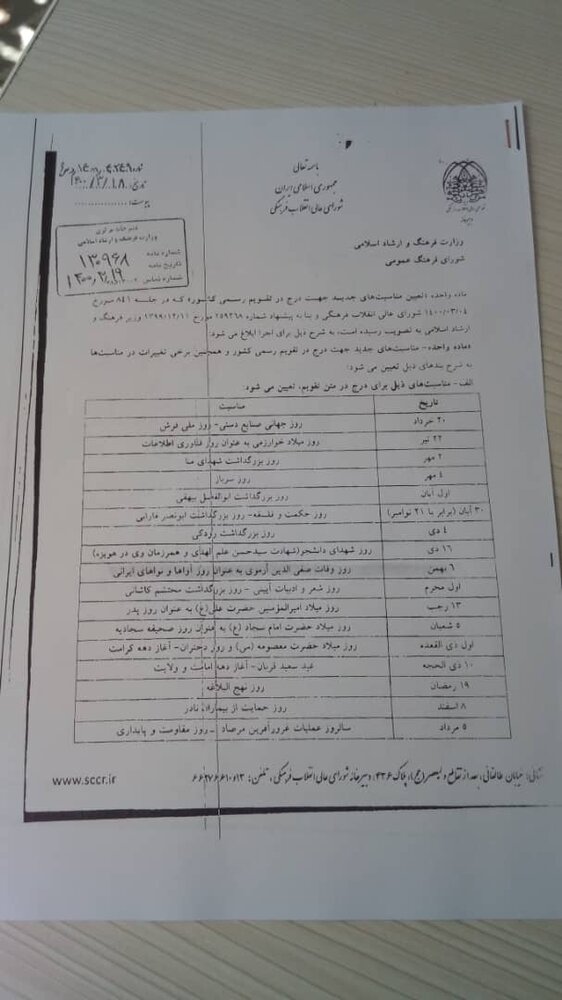 باسمه تعالی
جمهوری اسلامی ایران
شورای عالی انقلاب فرهنگی
شماره:
تاریخ:
پیوست: ..............
وزارت فرهنگ و ارشاد اسلامی
شماره نامه ۱۳۹۶۸
تاریخ نامه
شماره تماس
وزارت فرهنگ و ارشاد اسلامی
شورای فرهنگ عمومی
ماده واحده «تعیین مناسبت‌های جدید جهت درج در تقویم رسمی کشور» که در جلسه ۸۴۱ مورخ
۱۴۰۰/۰۳/۰۴ شورای عالی انقلاب فرهنگی و بنا به پیشنهاد شماره ۲۵۹۳۶۸ مورخ ۱۳۹۹/۱۲/۱۱ وزیر فرهنگ و
ارشاد اسلامی به تصویب رسیده است، به شرح ذیل برای اجرا ابلاغ می شود:
«ماده واحده- مناسبت‌های جدید جهت درج در تقویم رسمی کشور و همچنین برخی تغییرات در مناسبت‌ها
به شرح بندهای ذیل تعیین می شود:
الف- مناسبت‌های ذیل برای درج در متن تقویم، تعیین می شود:
تاریخ مناسبت
۲۰ خرداد روز جهانی صنایع دستی- روز ملی فرش
۲۲ تیر روز میلاد خوارزمی به عنوان روز فناوری اطلاعات
۲ مهر روز بزرگداشت شهدای منا
۴ مهر روز سرباز
اول آبان روز بزرگداشت ابوالفضل بیهقی
۳۰ آبان (برابر با ۲۱ نوامبر) روز حکمت و فلسفه- روز بزرگداشت ابونصر فارابی
۴ دی روز بزرگداشت رودکی
۱۶ دی روز شهدای دانشجو(شهادت سیدحسن علم الهدی و همرزمان وی در هویزه)
۶ بهمن روز وفات صفی الدین ارموی به عنوان روز آواها و نواهای ایرانی
اول محرم روز شعر و ادبیات آیینی - روز بزرگداشت محتشم کاشانی
۱۳ رجب روز میلاد امیرالمؤمنین حضرت علی(ع) به عنوان روز پدر
۵ شعبان روز میلاد حضرت امام سجاد (ع) به عنوان روز صحیفه سجادیه
اول ذی القعده روز میلاد حضرت معصومه (س) و روز دختران- آغاز دهه کرامت
۱۰ ذی الحجه عید سعید قربان- آغاز دهه امامت و ولایت
۱۹ رمضان روز نهج البلاغه
۸ اسفند روز حمایت از بیماران نادر
۵ مرداد سالروز عملیات غرورآفرین مرصاد - روز مقاومت و پایداری
خیابان طالقانی، بعد از تقاطع ولیعصر(عج)، پلاک ۴۳۶، دبیرخانه شورای عالی انقلاب فرهنگی، تلفن:
www.sccr.ir